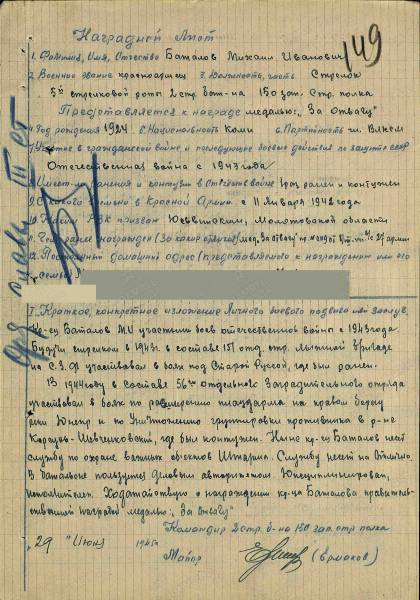 149
Наградной Лист
1. Фамилия, Имя, Отчество Баталов Михаил Иванович
2. Военное звание красноармеец 3. Должность, часть Стрелок
5й стрелковой роты 2 стр. бат-на 150 зап. Стр. полка
Представляется к награде медалью: "За Отвагу"
4. Год рождения 1924 5. Национальность Коми 6. Партийность чл. ВЛКСМ
7. Участие в гражданской войне и последующие боевые действия по защите СССР
Отечественная война с 1943 года
8. Имеет ли ранения и контузии в Отечеств войне 1 раз ранен и контужен
9. С какого времени в Красной Армии с 11 Января 1942 года
10. Каким РВК призван Юсьвинским, Молотовской области
11. Чем ранее награжден (За какие отличия) мед. "За отвагу"
12. Постоянный домашний адрес (представляемого к награждению или его
семьи)
I. Краткое, конкретное изложение Личного боевого подвига или заслуг.
Кр-ец Баталов М.И участник боев отечественной войны с 1943 года.
Будучи стрелком в 1943г. в составе 151 отд. стр. лыжной бригаде
на С.З. Ф участвовал в боях под Старой Руссой, где был ранен.
В 1944 году в составе 56го отдельного Заградительного отряда
участвовал в боях по расширению плацдарма на правом берегу
реки Днепр и по уничтожению группировки противника в р-не
Корсунь-Шевченковский, где был контужен. Ныне кр-ец Баталов несет
службу по охране важных объектов Штарма. Службу несет на Отлично.
В батальоне пользуется деловым авторитетом. Дисциплинирован,
исполнителен. Ходатайствую о награждении кр-ца Баталова правитель-
ственной наградой медалью: "За Отвагу"
Командир 2 стр. б-на 150 зап. стр. полка
"29" Июня 1945г. Майор (Ермаков)